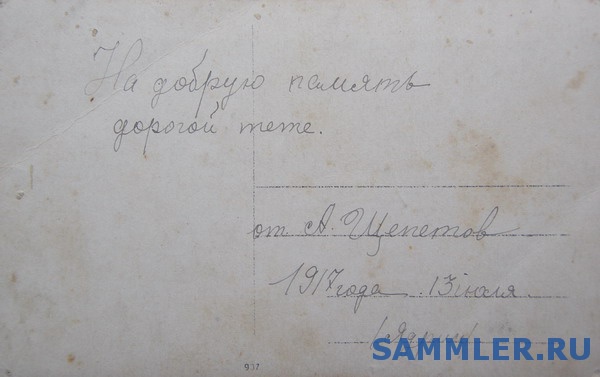 На добрую память
дорогой тете.
от А. Щепетов
1917 года 13 июля.
937
SAMMLER.RU